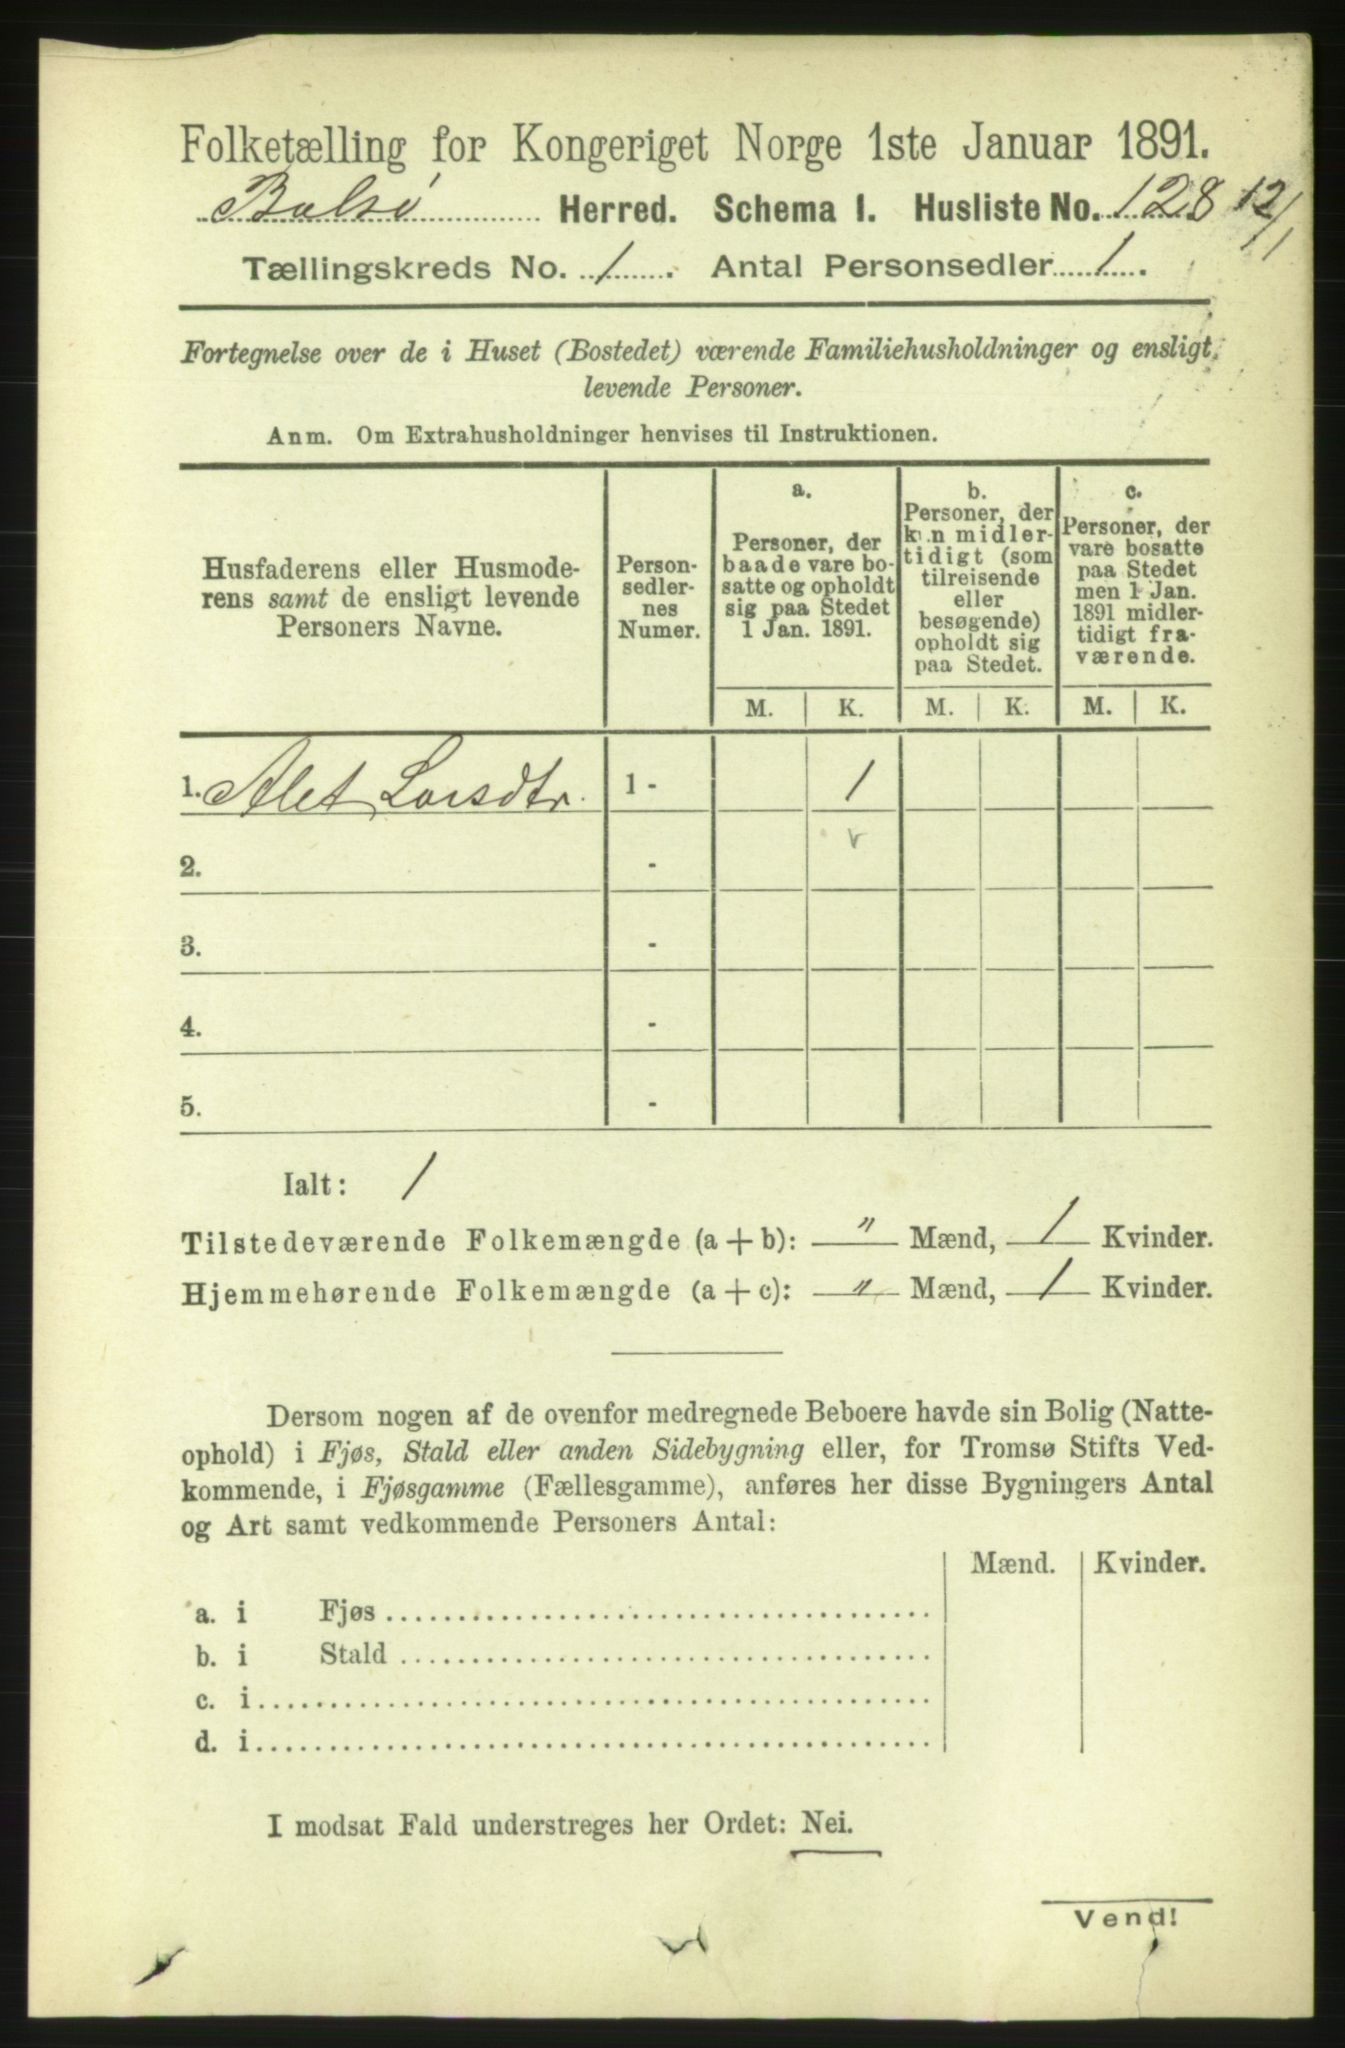 Folketælling for Kongeriget Norge 1ste Januar 1891.
Bolsø Herred. Schema I. Husliste No. 128 12/1
Tællingskreds No. 1. Antal Personsedler 1.
Fortegnelse over de i Huset (Bostedet) værende Familiehusholdninger og ensligt
levende Personer.
Anm. Om Extrahusholdninger henvises til Instruktionen.
Husfaderens eller Husmode-
rens samt de ensligt levende
Personers Navne.
Person-
sedler-
nes
Numer.
a.
Personer, der
baade vare bo-
satte og opholdt
sig paa Stedet
1 Jan. 1891.
b.
Personer, der
kun midler-
tidigt (som
tilreisende
eller
besøgende)
opholdt sig
paa Stedet.
c.
Personer, der
vare bosatte
paa Stedet
men 1 Jan.
1891 midler-
tidigt fra-
værende.
M. K. M. K. M. K.
1. Alet Larsdtr. 1 - 1
2. - v
3. -
4. -
5. -
Ialt: 1
Tilstedeværende Folkemængde (a + b): " Mænd, 1 Kvinder.
Hjemmehørende Folkemængde (a + c): " Mænd, 1 Kvinder.
Dersom nogen af de ovenfor medregnede Beboere havde sin Bolig (Natte-
ophold) i Fjøs, Stald eller anden Sidebygning eller, for Tromsø Stifts Ved-
kommende, i Fjøsgamme (Fællesgamme), anføres her disse Bygningers Antal
og Art samt vedkommende Personers Antal:
Mænd. Kvinder.
a. i Fjøs
b. i Stald
c. i
d. i
I modsat Fald understreges her Ordet: Nei.
Vend!